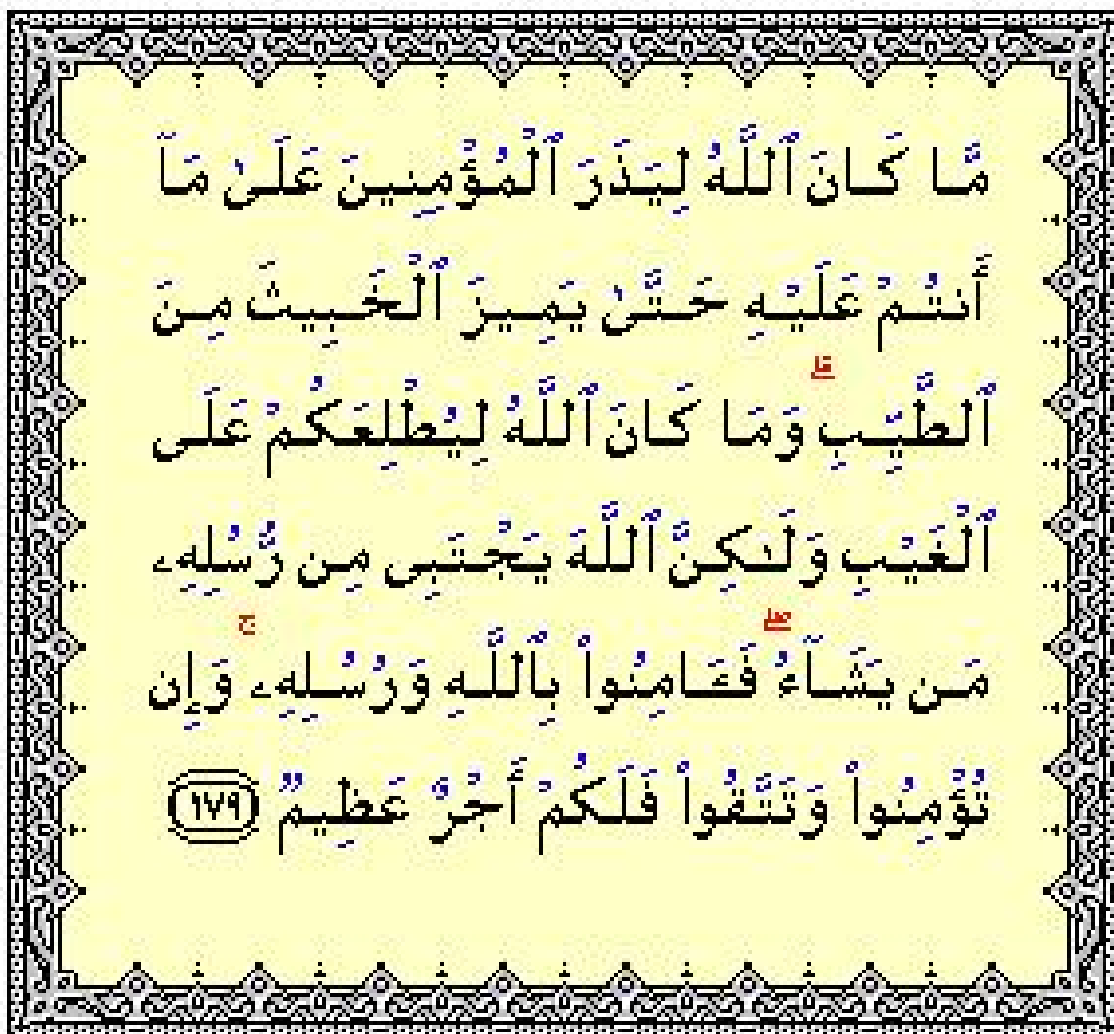 مَّا كَانَ ٱللَّهُ لِيَذَرَ ٱلْمُؤْمِنِينَ عَلَىٰ مَآ
أَنتُمْ عَلَيْهِ حَتَّىٰ يَمِيزَ ٱلْخَبِيثَ مِنَ
ٱلطَّيِّبِ ۗ وَمَا كَانَ ٱللَّهُ لِيُطْلِعَكُمْ عَلَى
ٱلْغَيْبِ وَلَـٰكِنَّ ٱللَّهَ يَجْتَبِى مِن رُّسُلِهِۦ
مَن يَشَآءُ ۖ فَـَٔامِنُوا۟ بِٱللَّهِ وَرُسُلِهِۦ ۚ وَإِن
تُؤْمِنُوا۟ وَتَتَّقُوا۟ فَلَكُمْ أَجْرٌ عَظِيمٌ ١٧٩